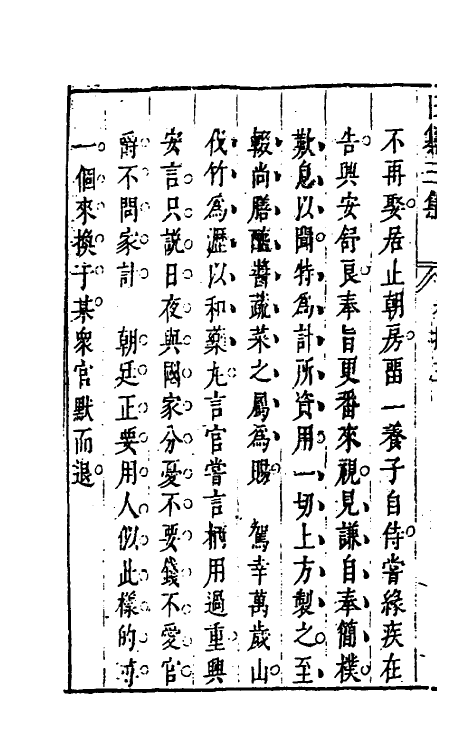 不再娶居止朝房畱一養子自侍嘗緣疾在
告興安舒良奉旨更番來視見謙自奉簡樸
歎息以聞特為計所資用一切上方製之至
輟尚膳醯醬蔬菜之屬為賜　駕幸萬歲山
伐竹為瀝以和藥丸言官嘗言柄用過重興
安言只説日夜與國家分憂不要錢不愛官
爵不問家計　朝廷正要用人似此樣的尋
一個來換于某衆官默而退